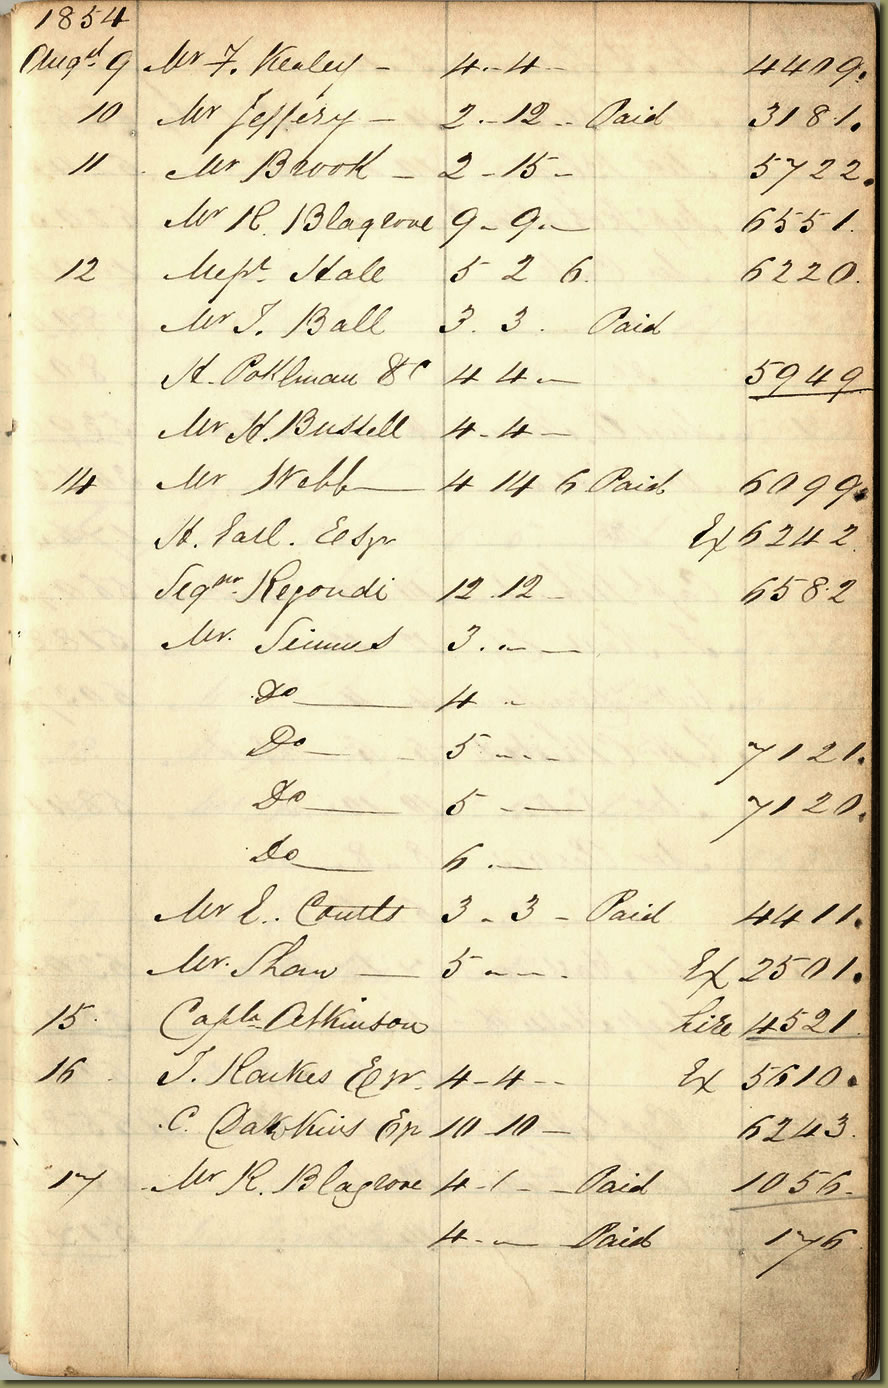 1854
Augst 9 Mr F. Healey - 4 - 4 - 4409.
10 Mr Jeffery - 2 - 12 - Paid 3181.
11 Mr Brook - 2 - 15 - 5722.
Mr R. Blagrove 9 - 9 - 6551.
12 Messrs Hale 5 2 6. 6220.
Mr T. Ball 3. 3. Paid
H. Pohlman & C 4 4 - 5949
Mr H. Bussell 4 - 4 -
14 Mr Webb 4 14 6 Paid 6099.
H. Earl. Esqr Ex 6242.
Segnor Regondi 12 12 - 6582
Mr. Simms 3. - -
Do 4 -
Do 5 - - - 7121.
Do 5 - - 7120.
Do 6 - -
Mr E. Coutts 3 - 3 - Paid 4411.
Mr. Shaw 5 - - - Ex 2501.
15. Captn Atkinson hire 4521.
16 T. Raikes Esqr. 4 - 4 - - Ex 5610.
C. Dawkins Esq 10 10 - 6243.
17 Mr R. Blagrove 4 - 1 - Paid 1056.
4 - - Paid 176